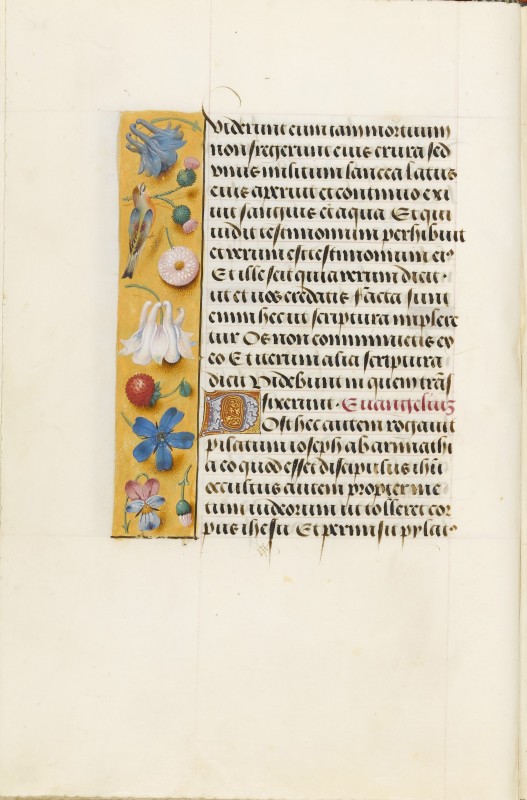 viderunt eum iam mortuum
non fregerunt eius crura sed
vnus militum lancea latus
eius aperuit et continuo exi
uit sanguis et aqua Et qui
uidit testimonium perhibuit
et verum est testimonium ei⁹
Et ille scit quia verum dicit·
ut et vos credatis Facta sunt
enim hec ut scriptura implere
tur Os non comminuetis ex
eo Et iterum alia scriptura
dicit Videbunt in quem trãs
fixerunt· Euangeliũ
Post hec autem rogauit
pilatum ioseph ab armathi
a eo quod esset discipulus ihũ
occultus autem propter me
tum iudeorum ut tolleret cor
pus ihesu Et permisit pylat⁹